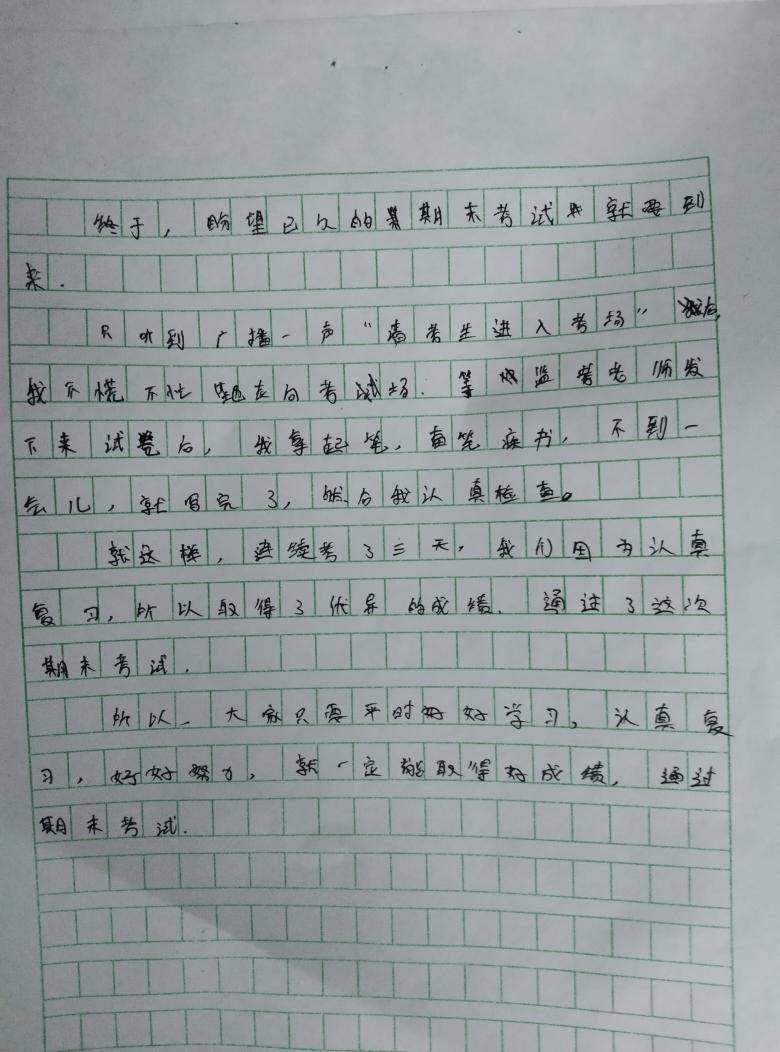 终于，盼望已久的期末考试就要到
来.
只听到广播一声“请考生进入考场”然后,
我不慌不忙地走向考试场.等监考老师发
下来试卷后，我拿起笔，奋笔疾书，不到一
会儿，就写完了，然后我认真检查。
就这样，连续考了三天，我们因为认真
复习，所以取得了优异的成绩.通过了这次
期末考试.
所以、大家只要平时好好学习，认真复
习，好好努力，就一定能取得好成绩，通过
期末考试.